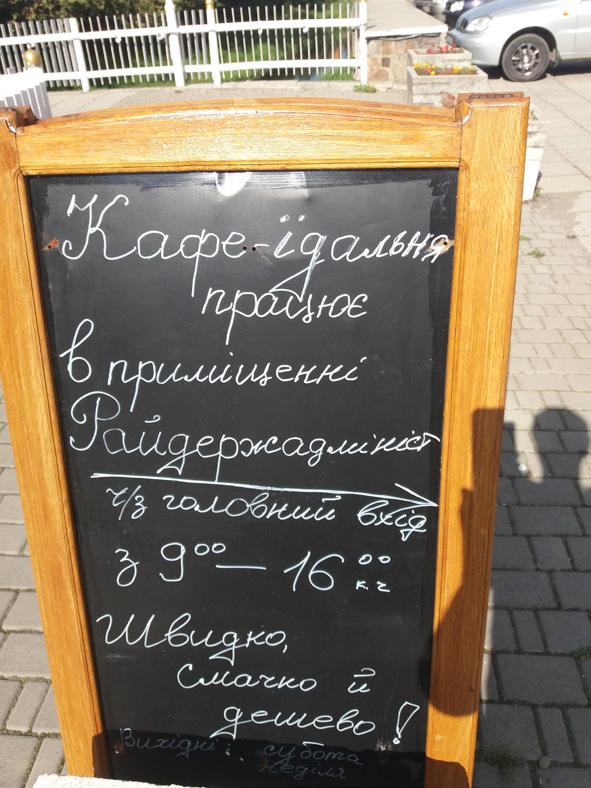 Кафе-їдальня
працює
в приміщенні
Райдержадмініст
ч/з головний вхід
з 9⁰⁰ — 16⁰⁰
к.ч
Швидко,
смачно й
дешево!
Вихідні: субота
неділя